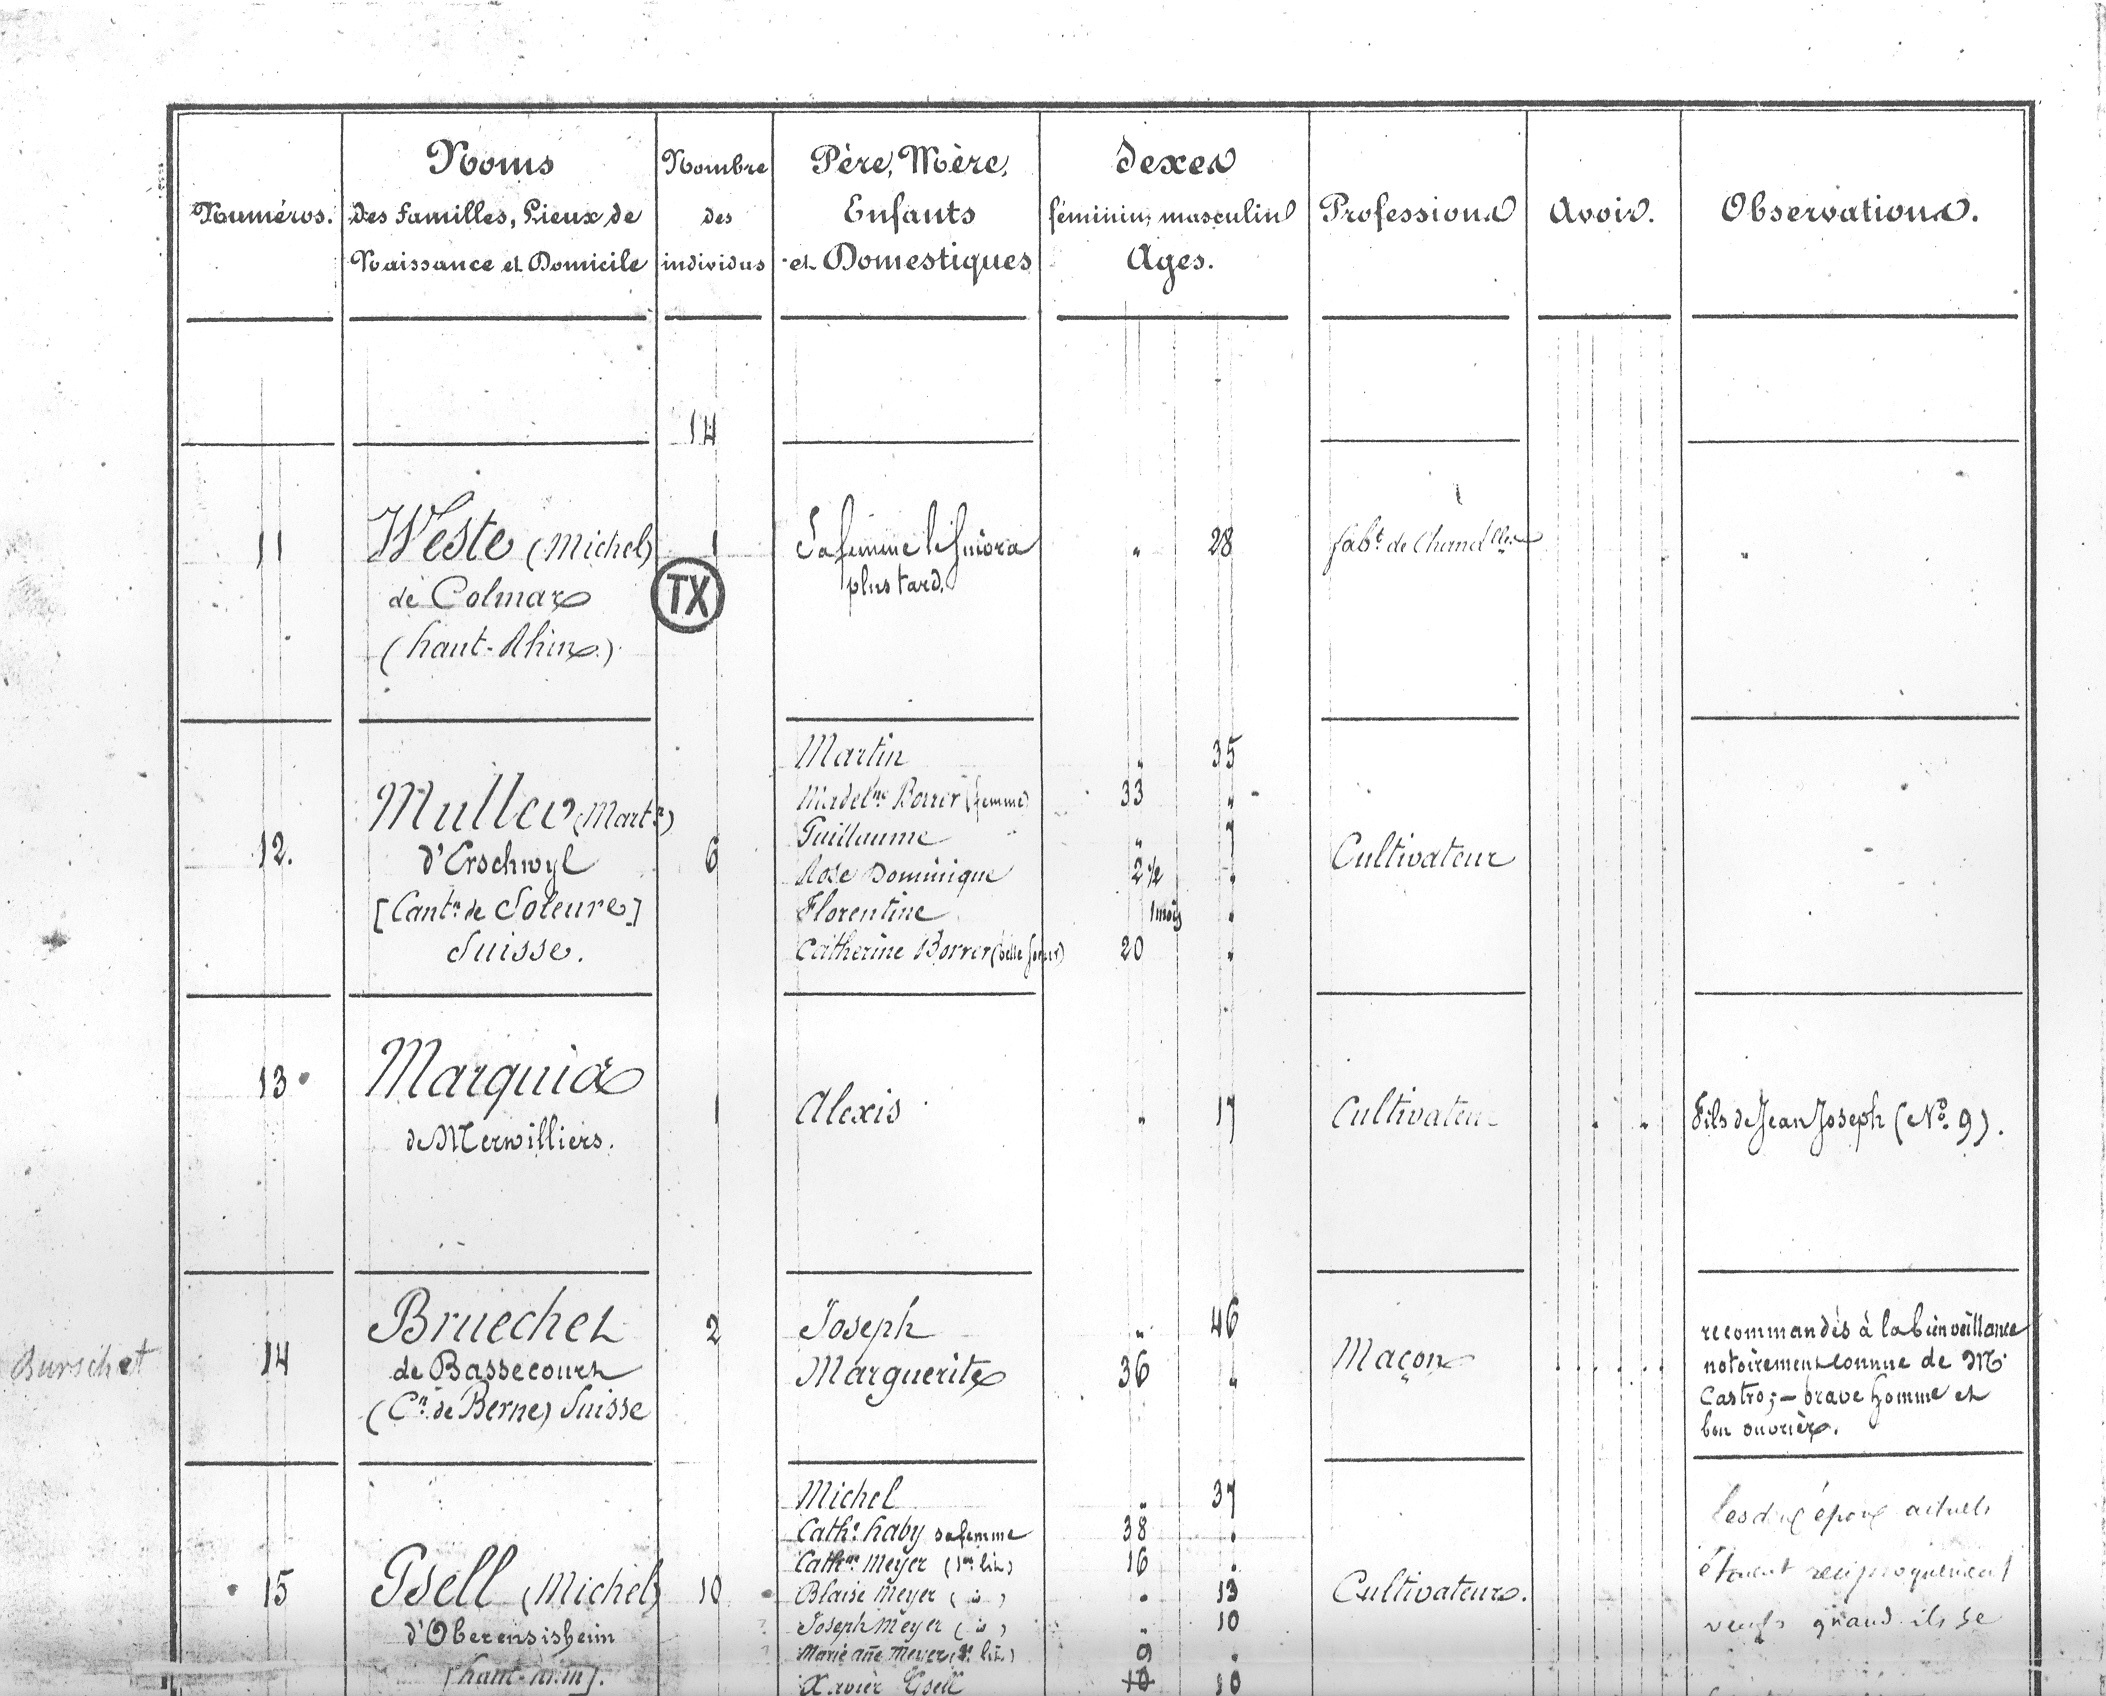 Numéros.
Noms
des familles, Lieux de
Naissance et Domicile
Nombre
des
individus
Père, Mère,
Enfants
et Domestiques
Sexes
féminin, masculin
Ages.
Professions
Avoir.
Observations.
14
11
Weste (Michel)
de Colmar
(haut-Rhin.)
1
TX
Sa femme le suivra
plus tard.
" 28
fabt. de Chandlles
12.
Muller (Martn)
d'Erschwyl
[Cantn de Soleure]
Suisse.
6
Martin " 35
Madelne Borrer (femme) 33 "
Guillaume " 7
Rose Dominique 2 1/2 "
Florentine 1 mois "
Catherine Borrer (belle soeur) 20 "
Cultivateur
13
Marquis
de Merwilliers.
1
Alexis " 17
Cultivateur
Fils de Jean Joseph (No. 9).
Burschet
14
Bruechet
de Bassecourt
(Cn. de Berne) Suisse
2
Joseph " 46
Marguerite 36 "
Maçon
recommandés à la bienveillance
notoirement connue de Mr.
Castro; - brave homme et
bon ouvrier.
15
Gsell (Michel)
d'Oberensisheim
[haut-rhin].
10
Michel " 37
Cathe. haby sa femme 38 "
Cathne Meyer (1er lit) 16 "
Blaise Meyer (id) " 13
Joseph Meyer (id) " 10
Marie añe Meyer ( lit) 9 "
Xavier Gsell 10 10
Cultivateurs.
Les dix époux actuels
étaient réciproquement
veufs quand ils se